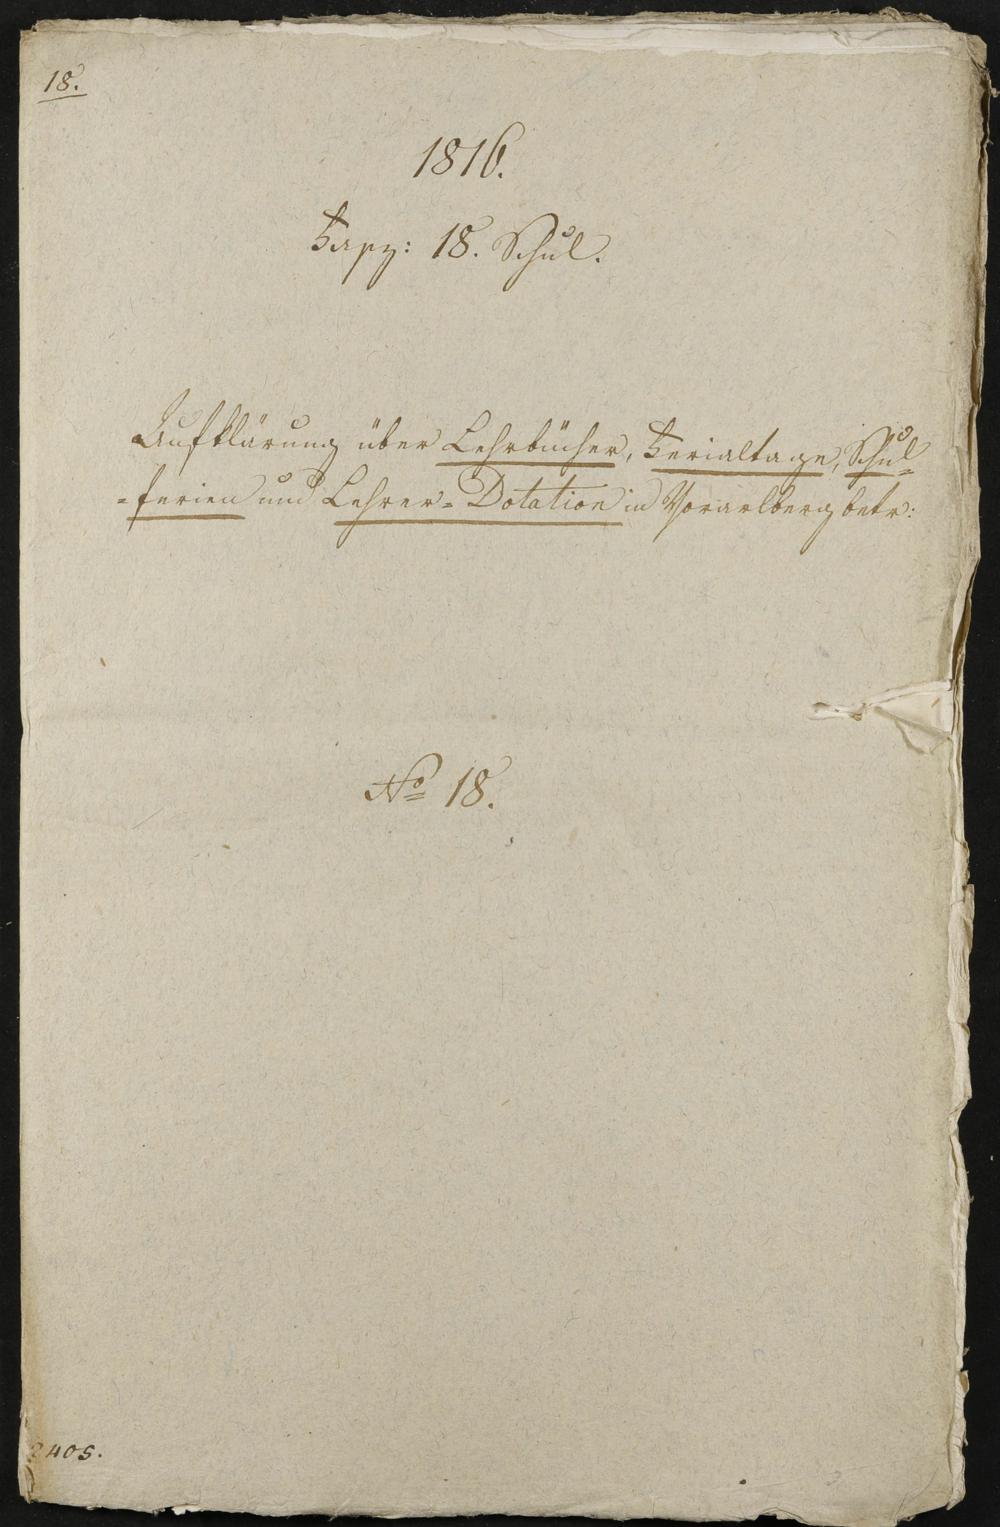 18.
1816.
Fasz: 18. Schul.
Aufklärung über Lehrbücher, Ferialtage, Schul-
-ferien und Lehrer-Dotation in Vorarlberg betr:
No 18.
2405.